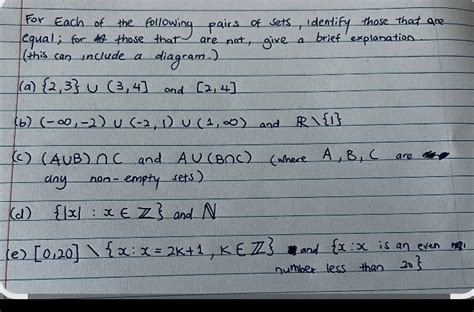 For Each of the following pairs of sets, identify those that are
equal; for those that are not, give a brief explanation.
(this can include a diagram.)
(a) {2,3} ∪ (3,4] and [2,4]
(b) (-∞,-2) ∪ (-2,1) ∪ (1,∞) and ℝ\{1}
(c) (A∪B)∩C and A∪(B∩C) (where A, B, C are
any non-empty sets)
(d) {|x| : x ∈ ℤ} and ℕ
(e) [0,20] \ {x : x = 2k+1, k ∈ ℤ} and {x : x is an even
number less than 20}